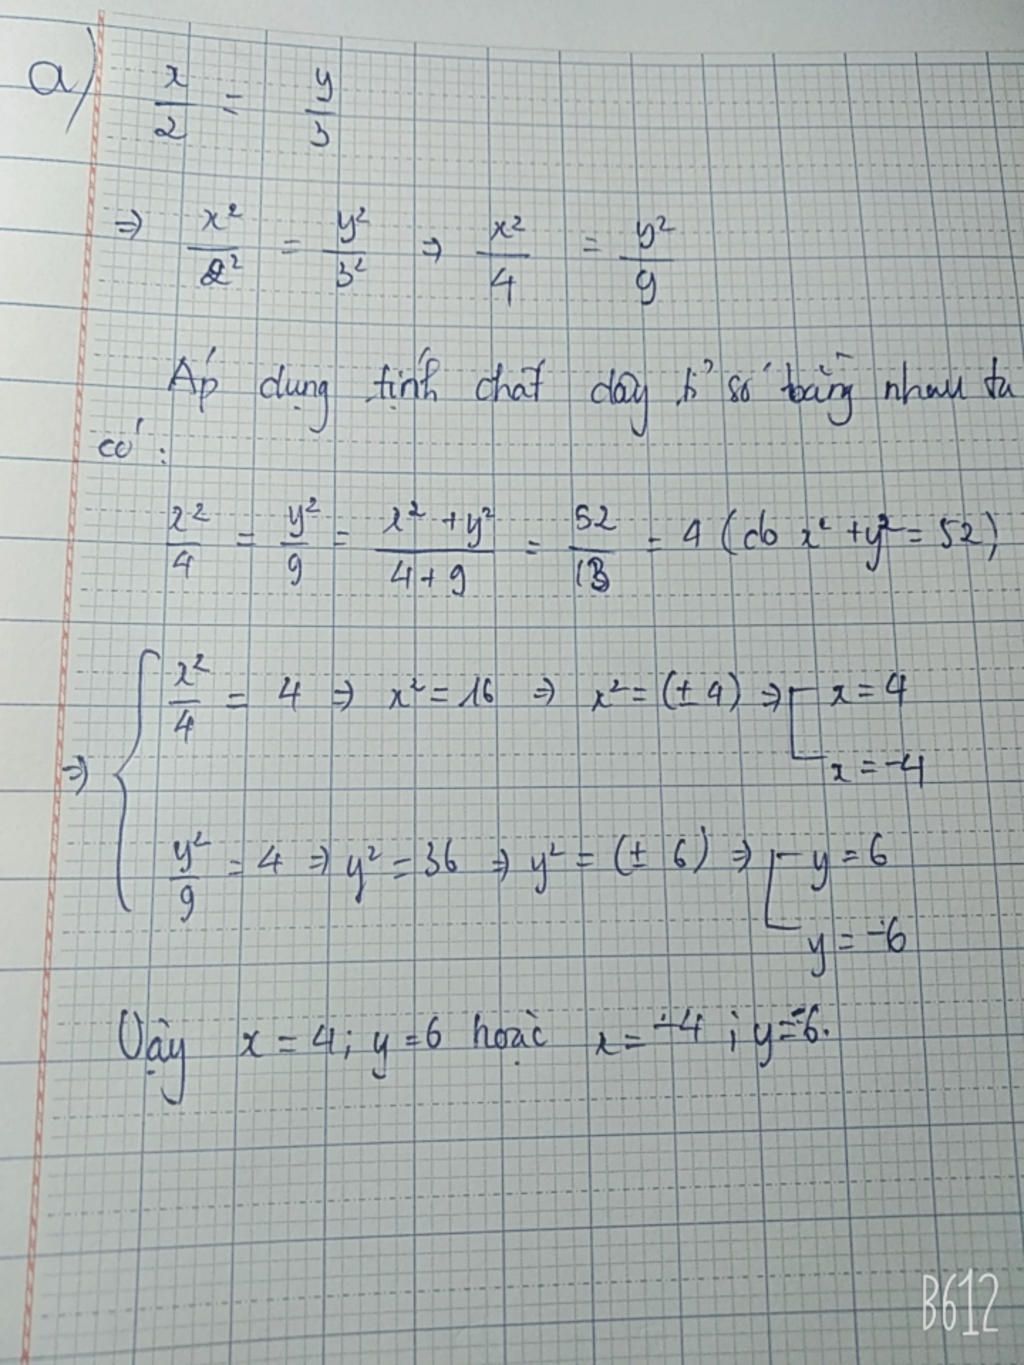 a) x/2 = y/3
⇒ x²/2² = y²/3² ⇒ x²/4 = y²/9
Áp dụng tính chất dãy tỉ số bằng nhau ta
có :
x²/4 = y²/9 = (x² + y²)/(4 + 9) = 52/13 = 4 (do x² + y² = 52)
⇒ { x²/4 = 4 ⇒ x² = 16 ⇒ x² = (± 4) ⇒ [ x = 4
x = -4
y²/9 = 4 ⇒ y² = 36 ⇒ y² = (± 6) ⇒ [ y = 6
y = -6
Vậy x = 4 ; y = 6 hoặc x = -4 ; y = -6.
B612